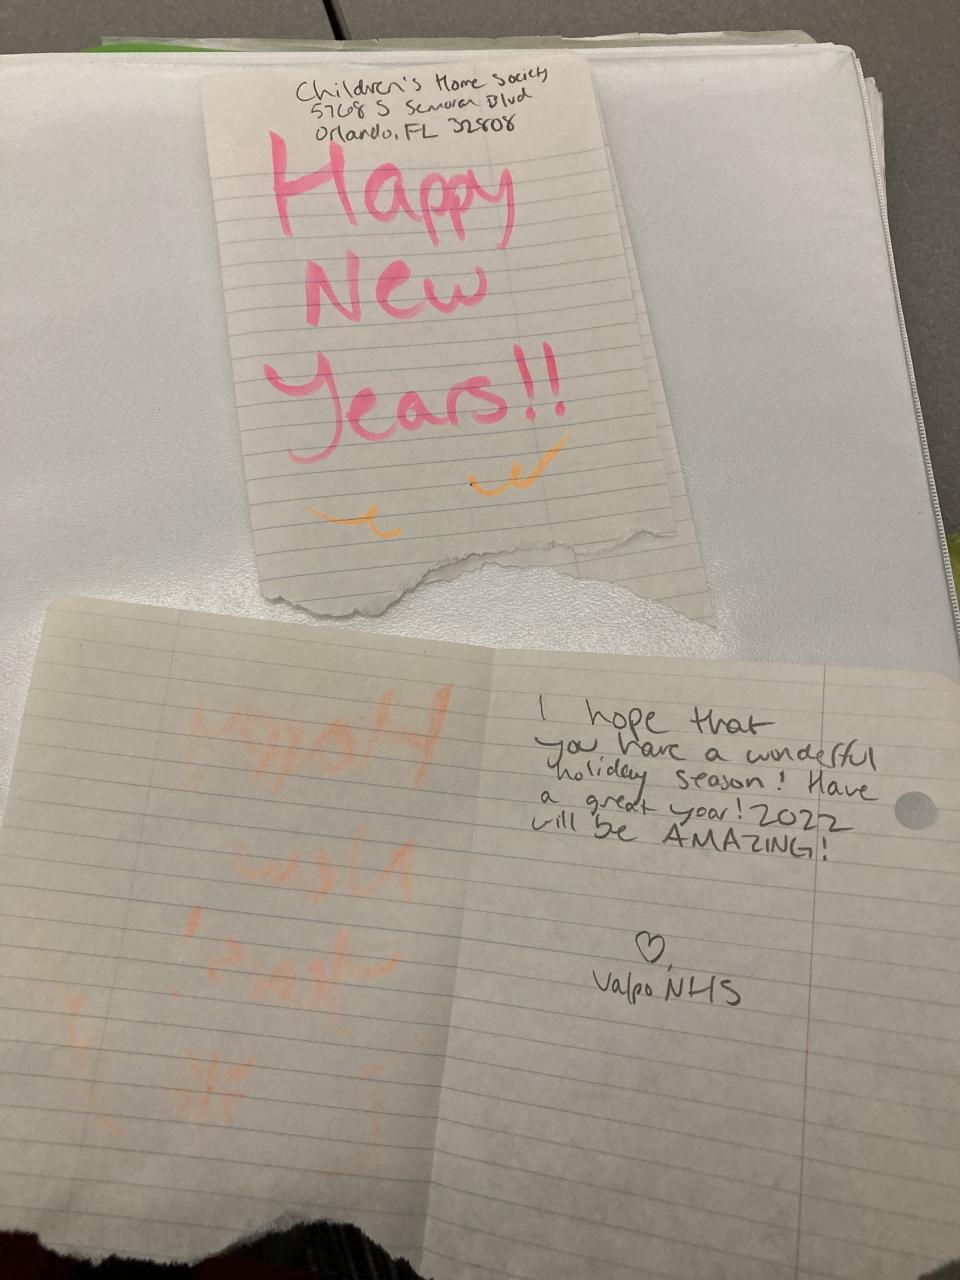 Children's Home Society
5768 S Semoran Blvd
Orlando, FL 32808
Happy
New
Years!!
I hope that
you have a wonderful
holiday season! Have
a great year! 2022
will be AMAZING!
♡,
Valpo NHS
Happy
New
Years!